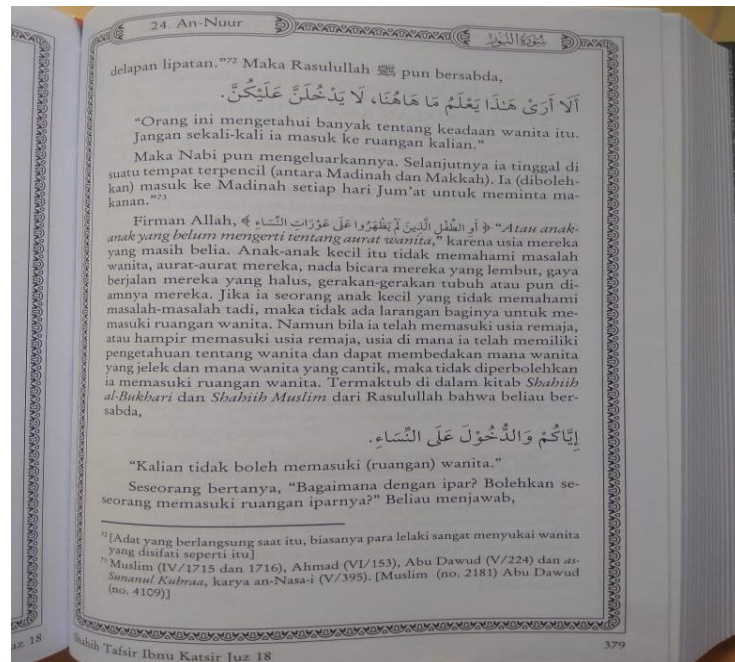 24. An-Nuur
سُوْرَةُ النُّوْر
delapan lipatan."⁷² Maka Rasulullah ﷺ pun bersabda,
أَلَا أَرَى هٰذَا يَعْلَمُ مَا هَاهُنَا، لَا يَدْخُلَنَّ عَلَيْكُنَّ.
"Orang ini mengetahui banyak tentang keadaan wanita itu.
Jangan sekali-kali ia masuk ke ruangan kalian."
Maka Nabi pun mengeluarkannya. Selanjutnya ia tinggal di
suatu tempat terpencil (antara Madinah dan Makkah). Ia (diboleh-
kan) masuk ke Madinah setiap hari Jum'at untuk meminta ma-
kanan."⁷³
Firman Allah, ﴿ أَوِ الطِّفْلِ الَّذِينَ لَمْ يَظْهَرُوا عَلَى عَوْرَاتِ النِّسَاءِ ﴾ "Atau anak-
anak yang belum mengerti tentang aurat wanita," karena usia mereka
yang masih belia. Anak-anak kecil itu tidak memahami masalah
wanita, aurat-aurat mereka, nada bicara mereka yang lembut, gaya
berjalan mereka yang halus, gerakan-gerakan tubuh atau pun di-
amnya mereka. Jika ia seorang anak kecil yang tidak memahami
masalah-masalah tadi, maka tidak ada larangan baginya untuk me-
masuki ruangan wanita. Namun bila ia telah memasuki usia remaja,
atau hampir memasuki usia remaja, usia di mana ia telah memiliki
pengetahuan tentang wanita dan dapat membedakan mana wanita
yang jelek dan mana wanita yang cantik, maka tidak diperbolehkan
ia memasuki ruangan wanita. Termaktub di dalam kitab Shahiih
al-Bukhari dan Shahiih Muslim dari Rasulullah bahwa beliau ber-
sabda,
إِيَّاكُمْ وَالدُّخُوْلَ عَلَى النِّسَاءِ.
"Kalian tidak boleh memasuki (ruangan) wanita."
Seseorang bertanya, "Bagaimana dengan ipar? Bolehkan se-
seorang memasuki ruangan iparnya?" Beliau menjawab,
⁷² [Adat yang berlangsung saat itu, biasanya para lelaki sangat menyukai wanita
yang disifati seperti itu]
⁷³ Muslim (IV/1715 dan 1716), Ahmad (VI/153), Abu Dawud (V/224) dan as-
Sunanul Kubraa, karya an-Nasa-i (V/395). [Muslim (no. 2181) Abu Dawud
(no. 4109)]
uz 18
Shahih Tafsir Ibnu Katsir Juz 18
379